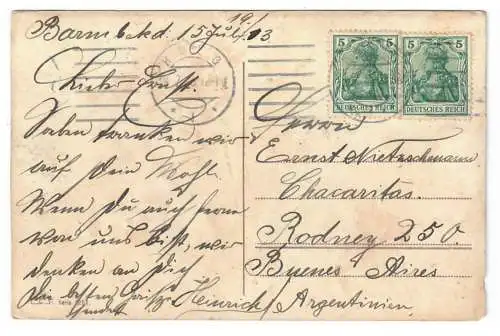 Barmbekd. 15 Juli 1913
5 5 5 5
DEUTSCHES REICH DEUTSCHES REICH
Lieber Ernst.
Soeben tranken wir
auf dein Wohl.
Wenn Du auch ferne
von uns bist, wir
denken an Dich
Die besten Grüße
sendet Heinrich
Herrn
Ernst Nietzschmann
Chacaritas.
Rodney 250.
Buenos Aires
Argentinien